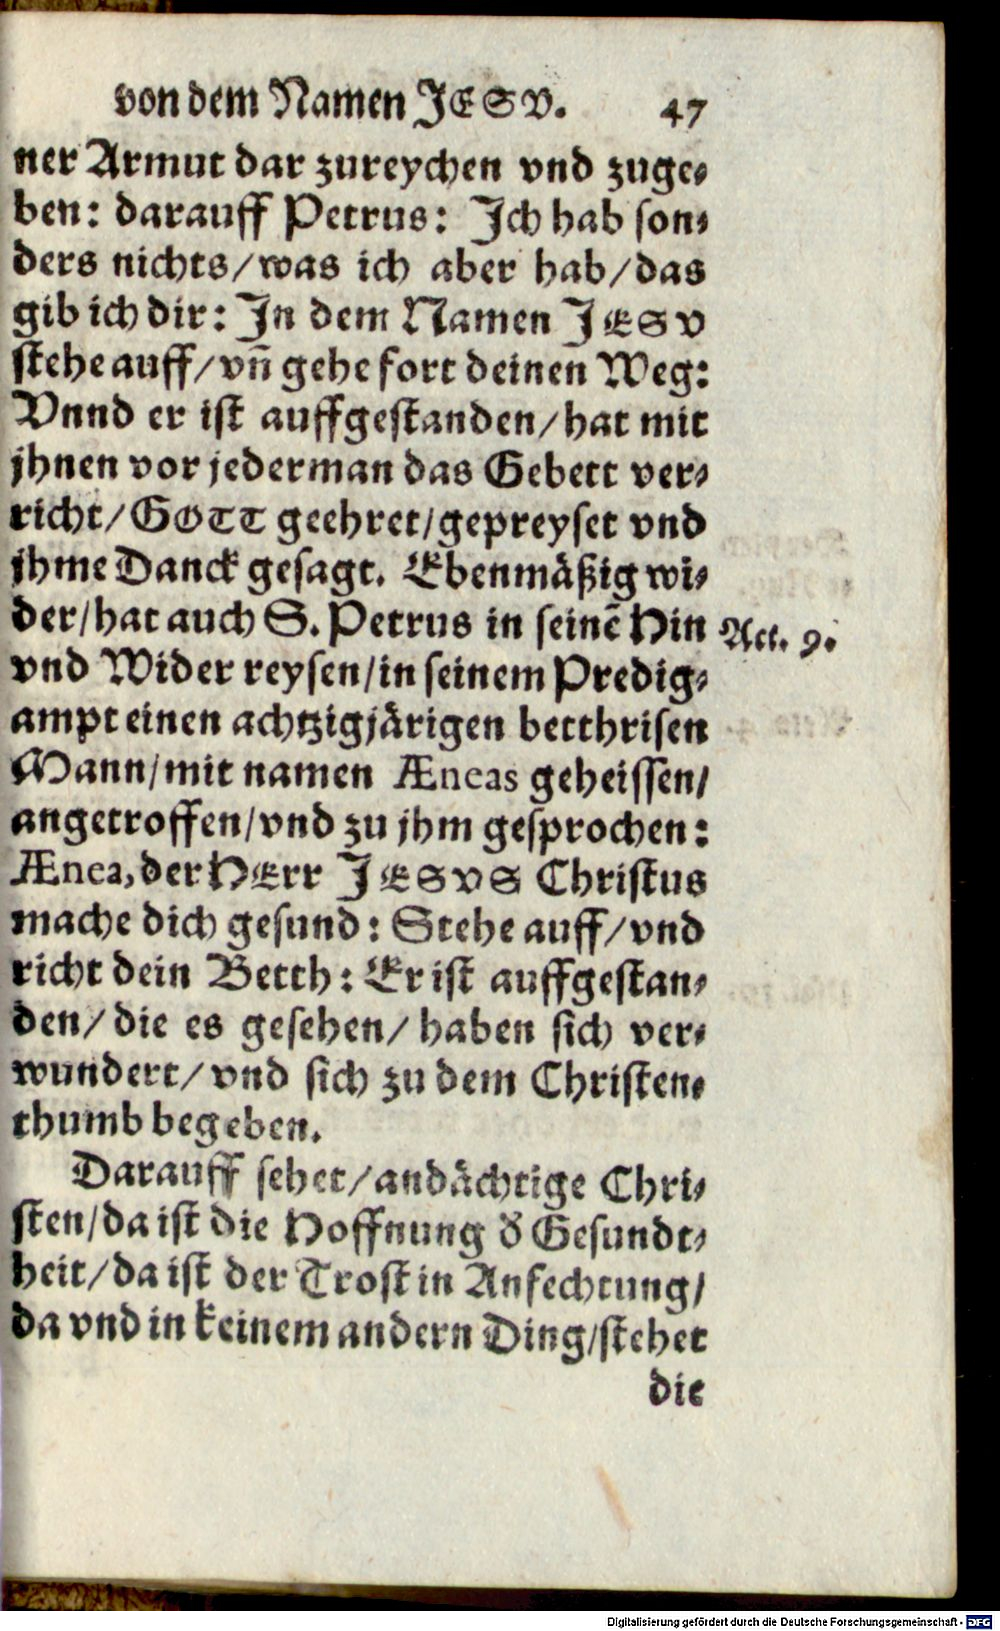 von dem Namen JESV. 47
ner Armut dar zureychen vnd zuge⸗
ben: darauff Petrus: Jch hab son⸗
ders nichts/was ich aber hab/das
gib ich dir: Jn dem Namen JESV
stehe auff/vñ gehe fort deinen Weg:
Vnnd er ist auffgestanden/hat mit
jhnen vor jederman das Gebett ver⸗
richt/GOTT geehret/gepreyset vnd
jhme Danck gesagt. Ebenmäßig wi⸗
der/hat auch S. Petrus in seinẽ Hin Act. 9.
vnd Wider reysen/in seinem Predig⸗
ampt einen achtzigjärigen betthrisen
Mann/mit namen Æneas geheissen/
angetroffen/vnd zu jhm gesprochen:
Ænea, der HErr JESVS Christus
mache dich gesund: Stehe auff/vnd
richt dein Betth: Er ist auffgestan⸗
den/die es gesehen/haben sich ver⸗
wundert/vnd sich zu dem Christen⸗
thumb begeben.
Darauff sehet/andächtige Chri⸗
sten/da ist die Hoffnung õ Gesundt⸗
heit/da ist der Trost in Anfechtung/
da vnd in keinem andern Ding/stehet
die
Digitalisierung gefördert durch die Deutsche Forschungsgemeinschaft - DFG